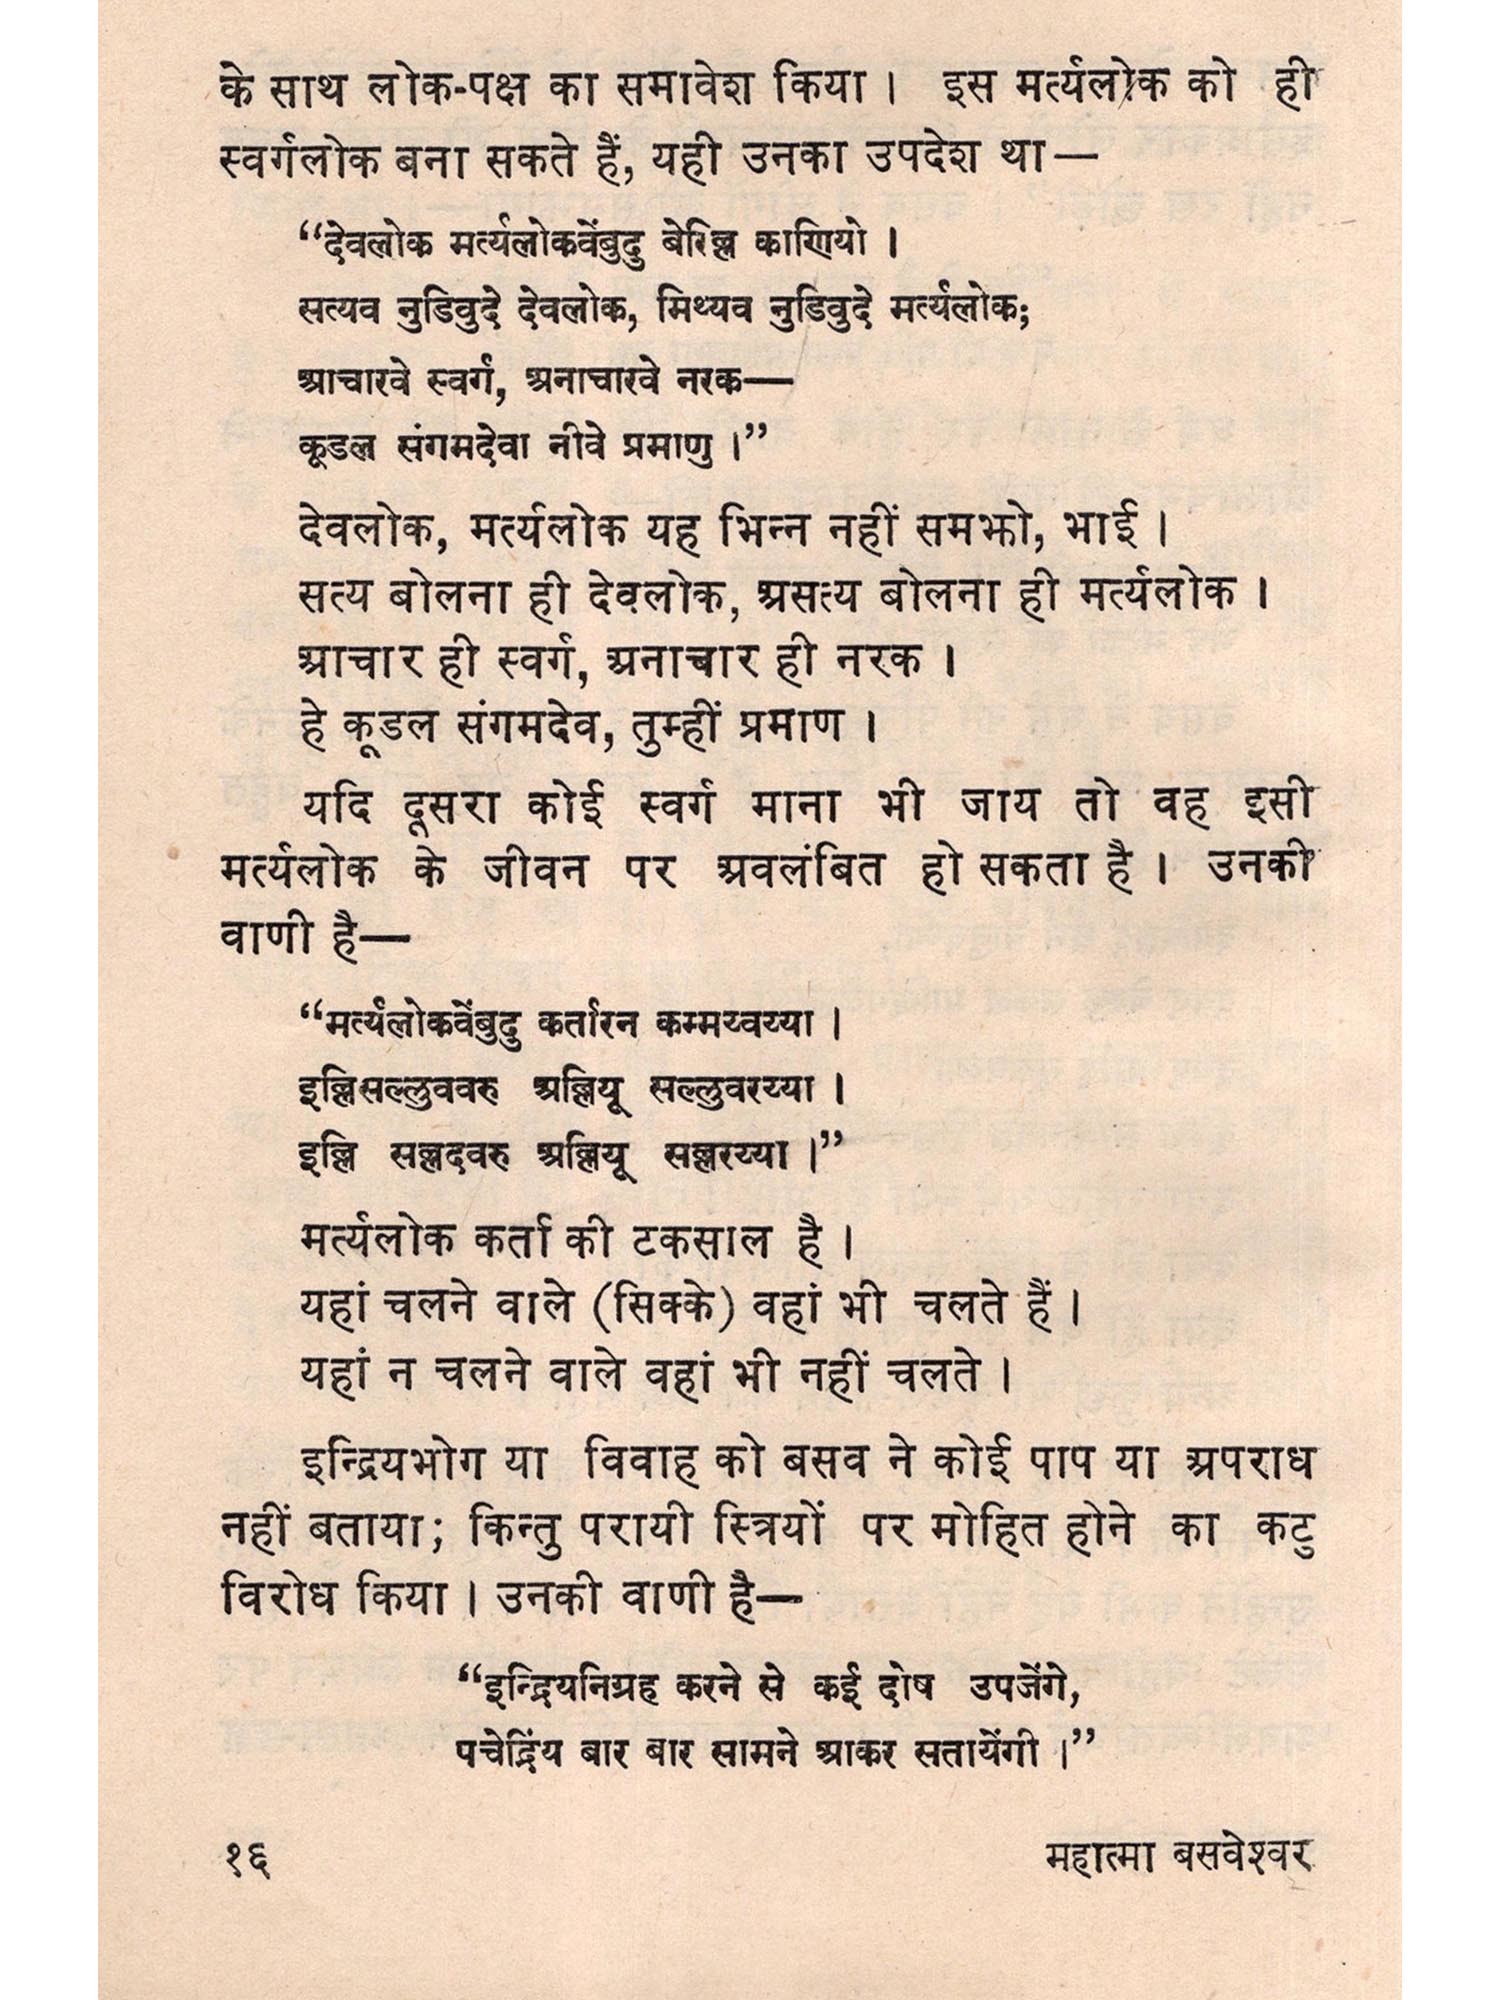 के साथ लोक-पक्ष का समावेश किया। इस मर्त्यलोक को ही
स्वर्गलोक बना सकते हैं, यही उनका उपदेश था—
“देवलोक मर्त्यलोकवेंबुदु बेरिल्ल काणियो।
सत्यव नुडिवुदे देवलोक, मिथ्यव नुडिवुदे मर्त्यलोक;
आचारवे स्वर्ग, अनाचारवे नरक—
कूडल संगमदेवा नीवे प्रमाणु।”
देवलोक, मर्त्यलोक यह भिन्न नहीं समझो, भाई।
सत्य बोलना ही देवलोक, असत्य बोलना ही मर्त्यलोक।
आचार ही स्वर्ग, अनाचार ही नरक।
हे कूडल संगमदेव, तुम्हीं प्रमाण।
यदि दूसरा कोई स्वर्ग माना भी जाय तो वह इसी
मर्त्यलोक के जीवन पर अवलंबित हो सकता है। उनकी
वाणी है—
“मर्त्यलोकवेंबुदु कर्तारन कम्मय्वय्या।
इल्लिसल्लुववरु अल्लियू सल्लुवरय्या।
इल्लि सल्लदवरु अल्लियू सल्लरय्या।”
मर्त्यलोक कर्ता की टकसाल है।
यहां चलने वाले (सिक्के) वहां भी चलते हैं।
यहां न चलने वाले वहां भी नहीं चलते।
इन्द्रियभोग या विवाह को बसव ने कोई पाप या अपराध
नहीं बताया; किन्तु परायी स्त्रियों पर मोहित होने का कटु
विरोध किया। उनकी वाणी है—
“इन्द्रियनिग्रह करने से कई दोष उपजेंगे,
पचेद्रिंय बार बार सामने आकर सतायेंगी।”
१६
महात्मा बसवेश्वर